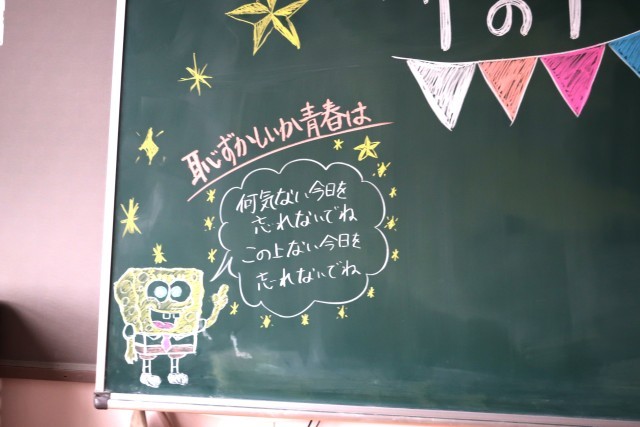 恥ずかしいか青春は
何気ない今日を
忘れないでね
この上ない今日を
忘れないでね